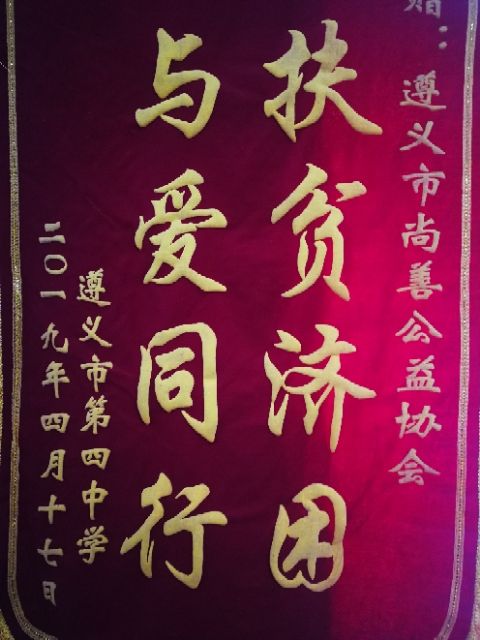 赠：遵义市尚善公益协会
扶贫济困
与爱同行
遵义市第四中学
二〇一九年四月十七日